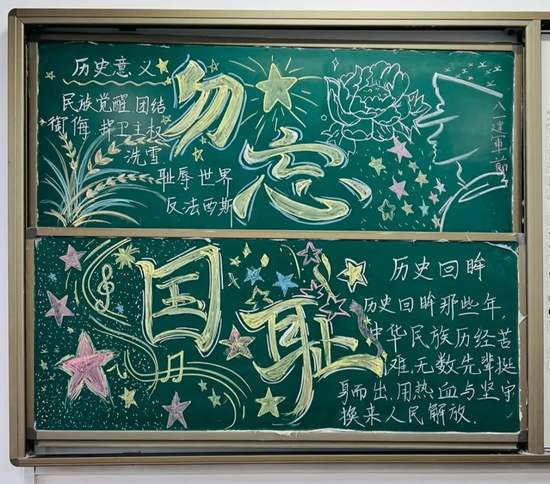 历史意义
民族觉醒 团结
御侮 捍卫主权
洗雪
耻辱 世界
反法西斯
勿忘
八一建軍節
国耻
历史回眸
历史回眸那些年,
中华民族历经苦
难,无数先辈挺
身而出,用热血与坚守
换来人民解放.